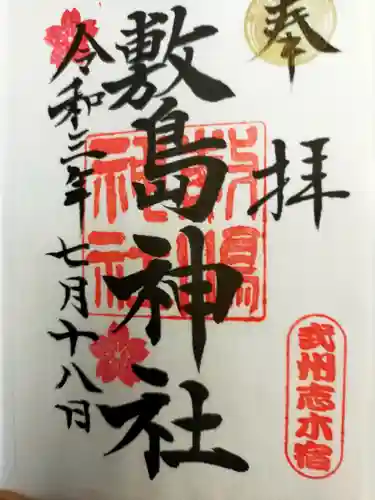 奉拝
武州志木宿
敷島神社
敷島神社
令和三年七月十八日